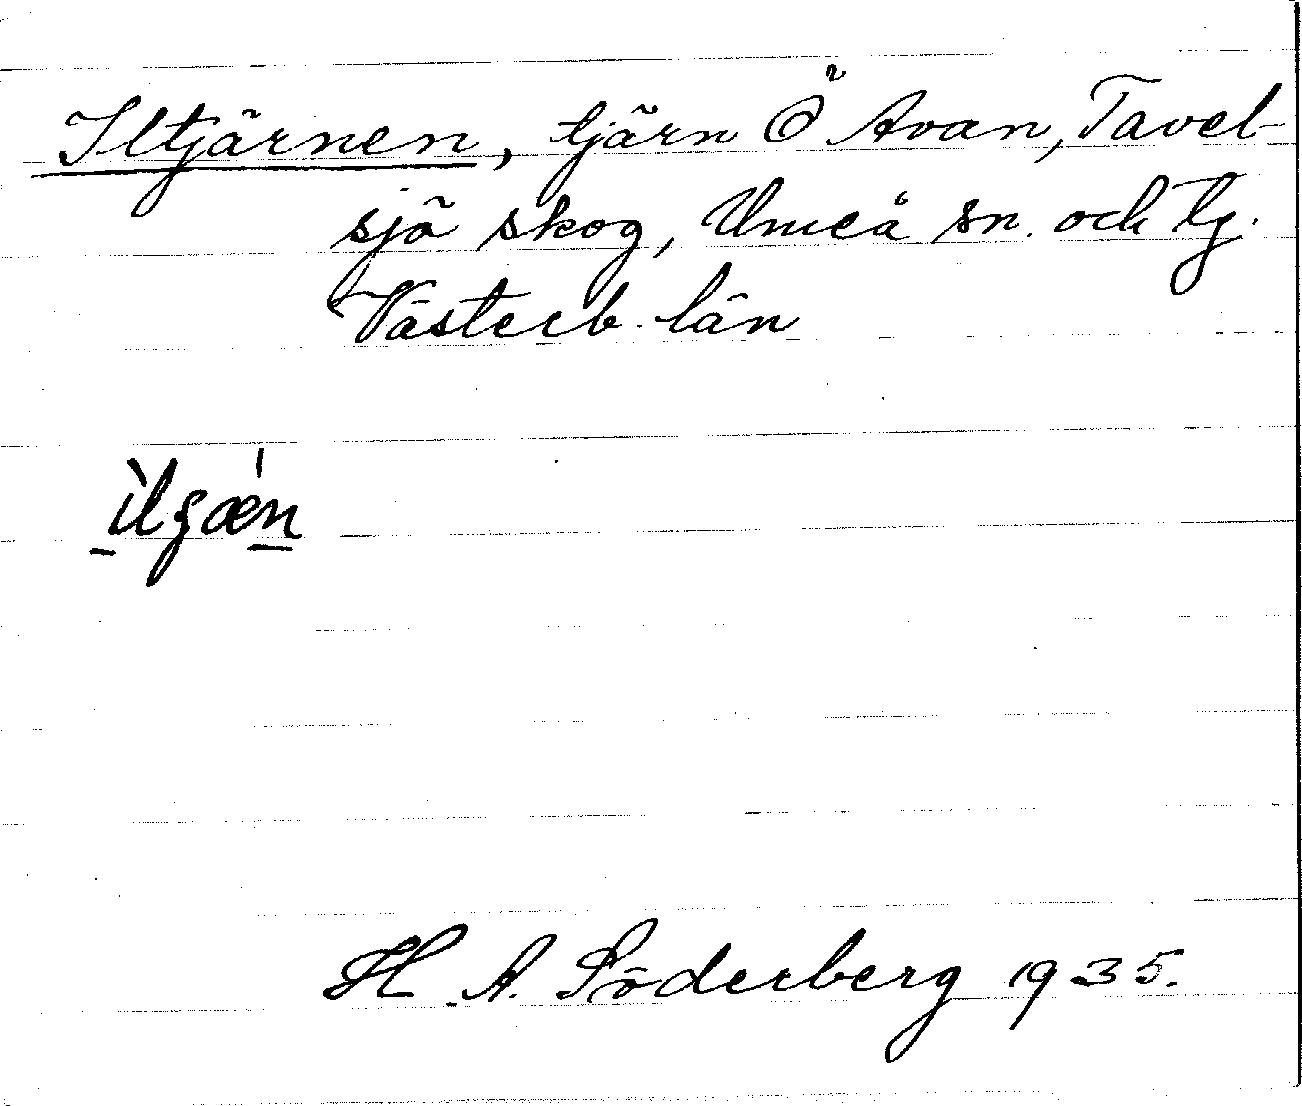 Iltjärnen, tjärn Ö Avan, Tavel-
sjö skog, Umeå sn. och tg.
Västerb. län
ìlʒǽn
H. A. Söderberg 1935.